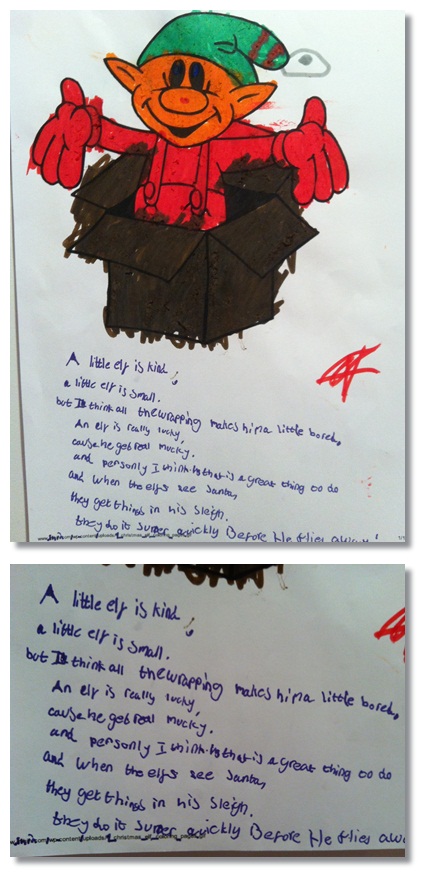 A little elf is kind,
a little elf is small.
but I think all the wrapping makes him a little bored,
An elf is really lucky,
cause he get real mucky.
and personly I think that is a great thing to do
and when the elfs see santa,
they get things in his sleigh.
they do it super quickly Before He flies away!
A little elf is kind,
a little elf is small.
but I think all the wrapping makes him a little bored,
An elf is really lucky,
cause he get real mucky.
and personly I think that is a great thing to do
and when the elfs see santa,
they get things in his sleigh.
they do it super quickly Before He flies awa